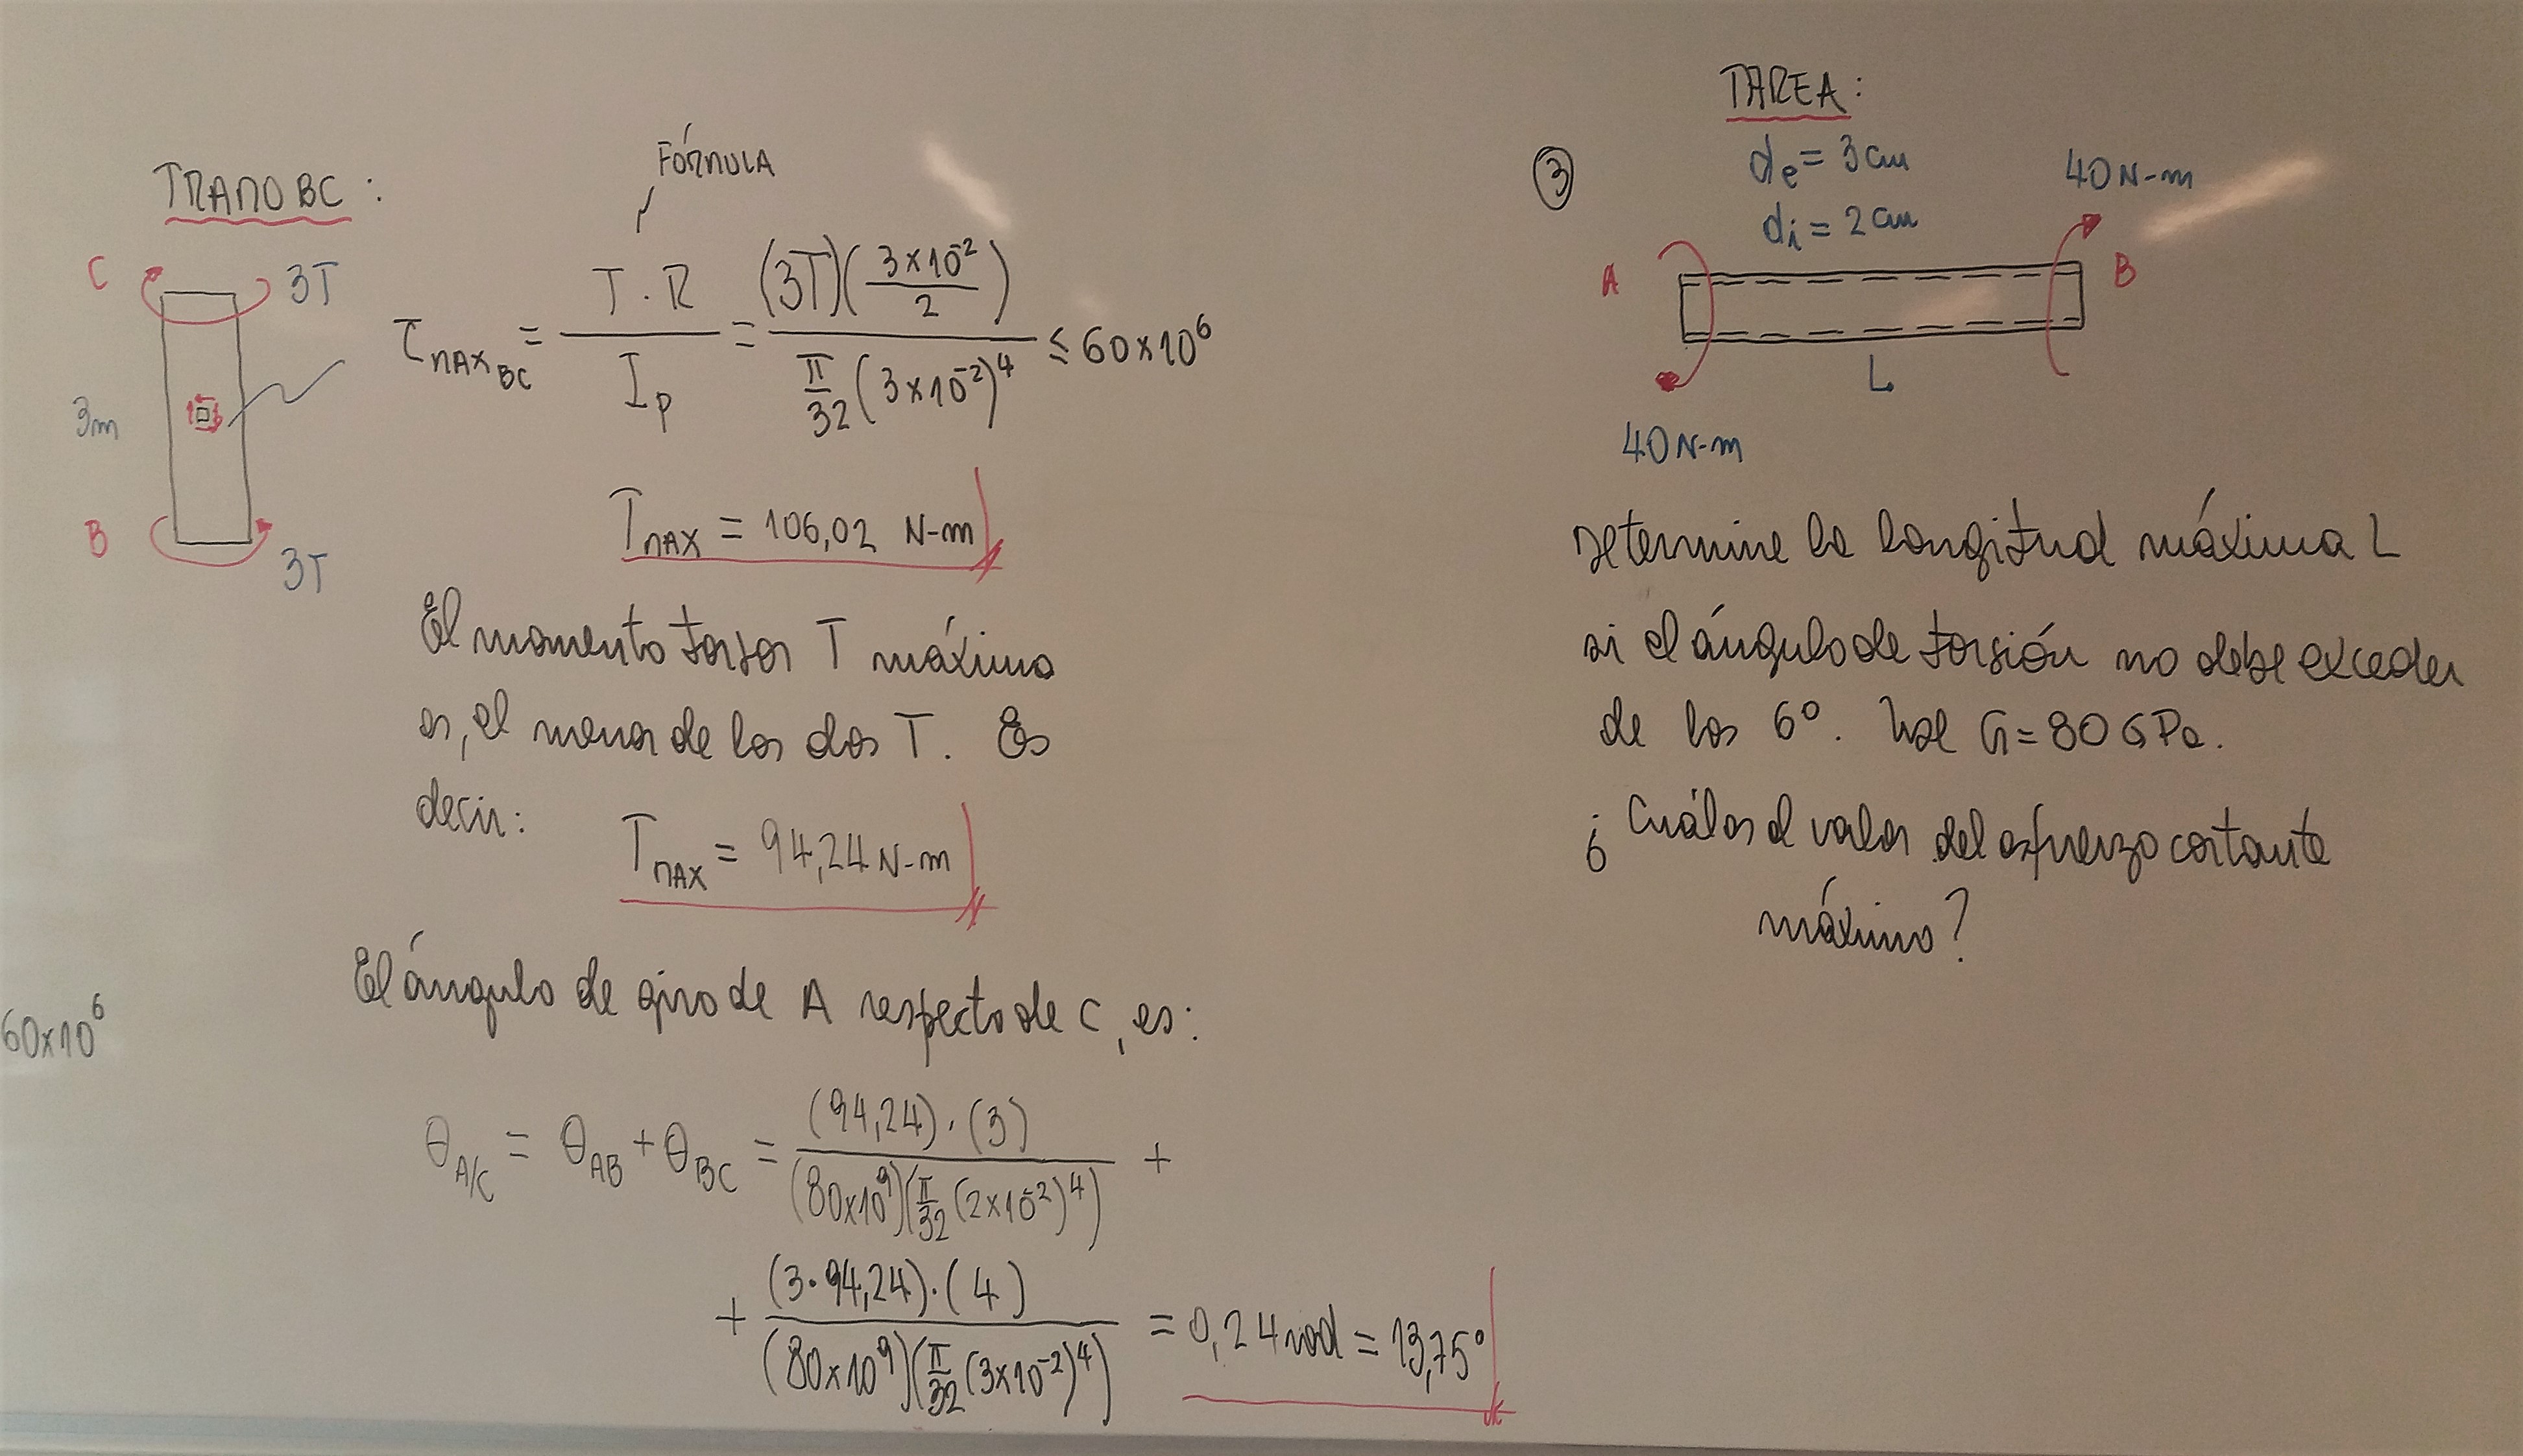 TRAMO BC:
FÓRMULA
C
3T
3m
B
3T
τ_MAX_BC = T·R / I_P = (3T)(3×10^-2 / 2) / (π/32 (3×10^-2)^4) ≤ 60×10^6
T_MAX = 106,02 N-m
El momento torsor T máximo
es, el menor de los dos T. Es
decir:
T_MAX = 94,24 N-m
El ángulo de giro de A respecto de C, es:
60×10^6
θ_A/C = θ_AB + θ_BC = (94,24)·(3) / (80×10^9)(π/32 (2×10^-2)^4) +
+ (3·94,24)·(4) / (80×10^9)(π/32 (3×10^-2)^4) = 0,24 rad = 13,75°
TAREA:
3
de = 3 cm
di = 2 cm
40 N-m
A
B
L
40 N-m
Determine la longitud máxima L
si el ángulo de torsión no debe exceder
de los 6°. Use G = 80 GPa.
¿Cuál es el valor del esfuerzo cortante
máximo?